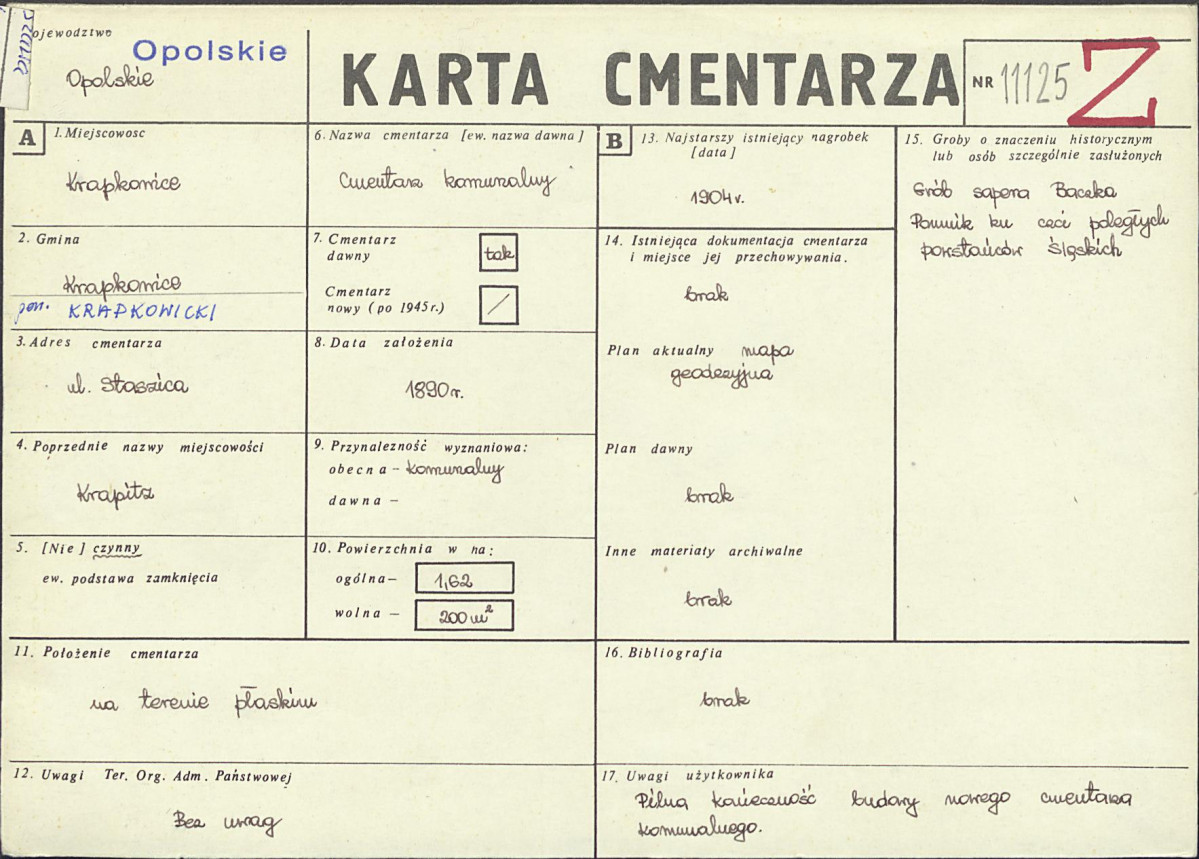 Województwo
Opolskie
Opolskie
KARTA CMENTARZA
NR 11125
Z
A
1. Miejscowosc
Krapkowice
2. Gmina
Krapkowice
pow. KRAPKOWICKI
3. Adres cmentarza
ul. Staszica
4. Poprzednie nazwy miejscowości
Krapitz
5. [Nie] czynny
ew. podstawa zamknięcia
6. Nazwa cmentarza [ew. nazwa dawna]
Cmentarz komunalny
7. Cmentarz
dawny
tak
Cmentarz
nowy (po 1945 r.)
/
8. Data założenia
1890 r.
9. Przynależność wyznaniowa:
obecna – komunalny
dawna –
10. Powierzchnia w ha:
ogólna – 1,62
wolna – 200 m²
11. Położenie cmentarza
na terenie płaskim
12. Uwagi Ter. Org. Adm. Państwowej
Bez uwag
B
13. Najstarszy istniejący nagrobek
[data]
1904 r.
14. Istniejąca dokumentacja cmentarza
i miejsce jej przechowywania.
brak
Plan aktualny mapa
geodezyjna
Plan dawny
brak
Inne materiały archiwalne
brak
15. Groby o znaczeniu historycznym
lub osób szczególnie zasłużonych
Grób sapera Baczka
Pomnik ku czci poległych
powstańców śląskich
16. Bibliografia
brak
17. Uwagi użytkownika
Pilna konieczność budowy nowego cmentarza
komunalnego.